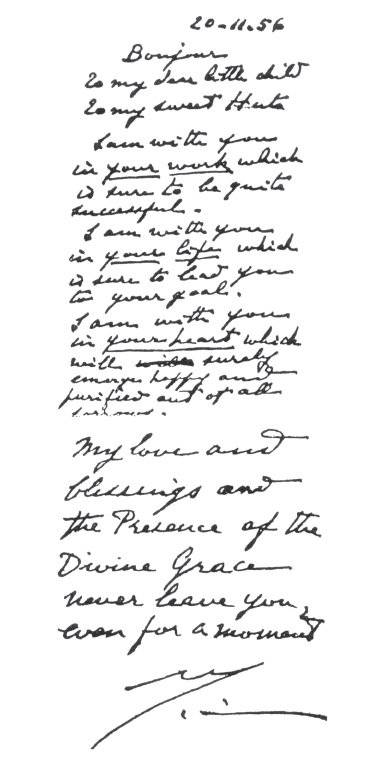 20-11-56
Bonjour
To my dear little child
To my sweet Huta
I am with you
in your work which
is sure to be quite
successful.
I am with you
in your life which
is sure to lead you
to your goal.
I am with you
in your heart which
will surely
emerge happy and
purified out of all

My love and
blessings and
the Presence of the
Divine Grace
never leave you,
even for a moment